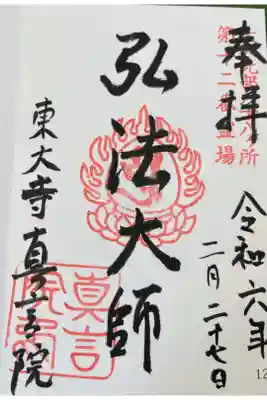 奉拝
第二番霊場
令和六年
二月二十七日
弘法大師
東大寺真言院
真言
12